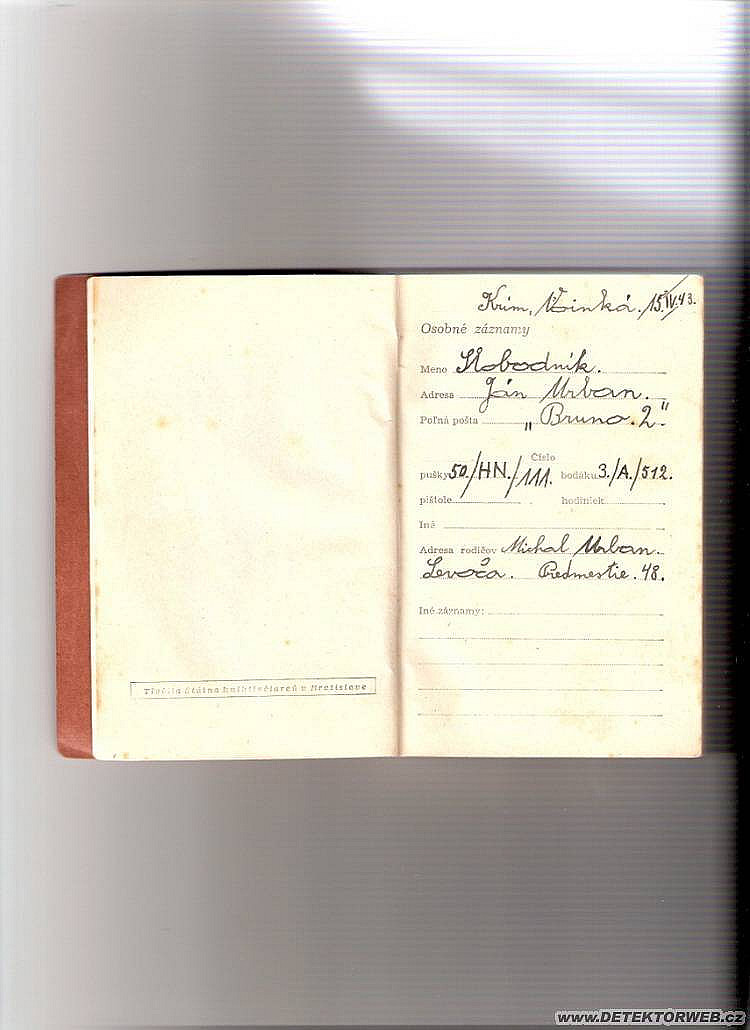 Krim, 15/IV.43.
Osobné záznamy
Meno Slobodník.
Adresa Ján Urban.
Poľná pošta „Bruno.2"
Číslo
pušky 50./HN./111. bodáku 3./A./512.
pištole hodiniek
Iné
Adresa rodičov Michal Urban.
Levoča. Predmestie. 48.
Iné záznamy:
Tlačila štátna kníhtlačiareň v Bratislave
www.DETEKTORWEB.cz